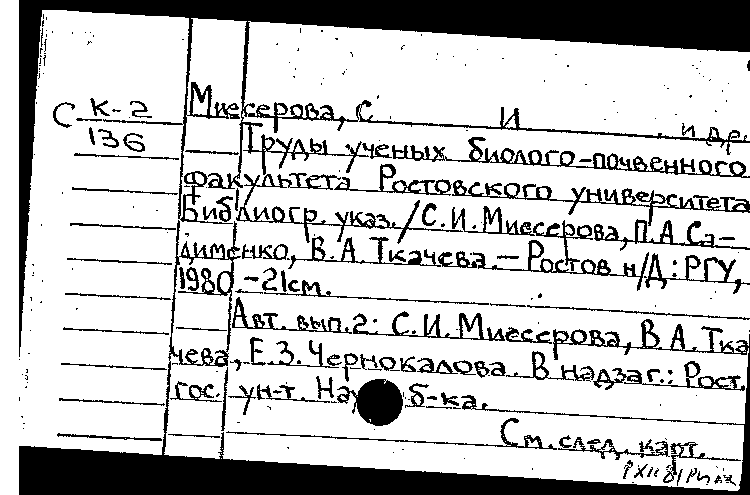 С К-2
136
Миесерова, С И и др.
Труды ученых биолого-почвенного
факультета Ростовского университета
Библиогр. указ./С.И.Миесерова, П.А Са-
дименко, В.А.Ткачева.—Ростов н/Д: РГУ,
1980.-21см.
Авт. вып.2: С.И.Миесерова, В.А.Тка
чева, Е.З.Чернокалова. В надзаг.: Рост.
гос. ун-т. б-ка.
См. след. карт.